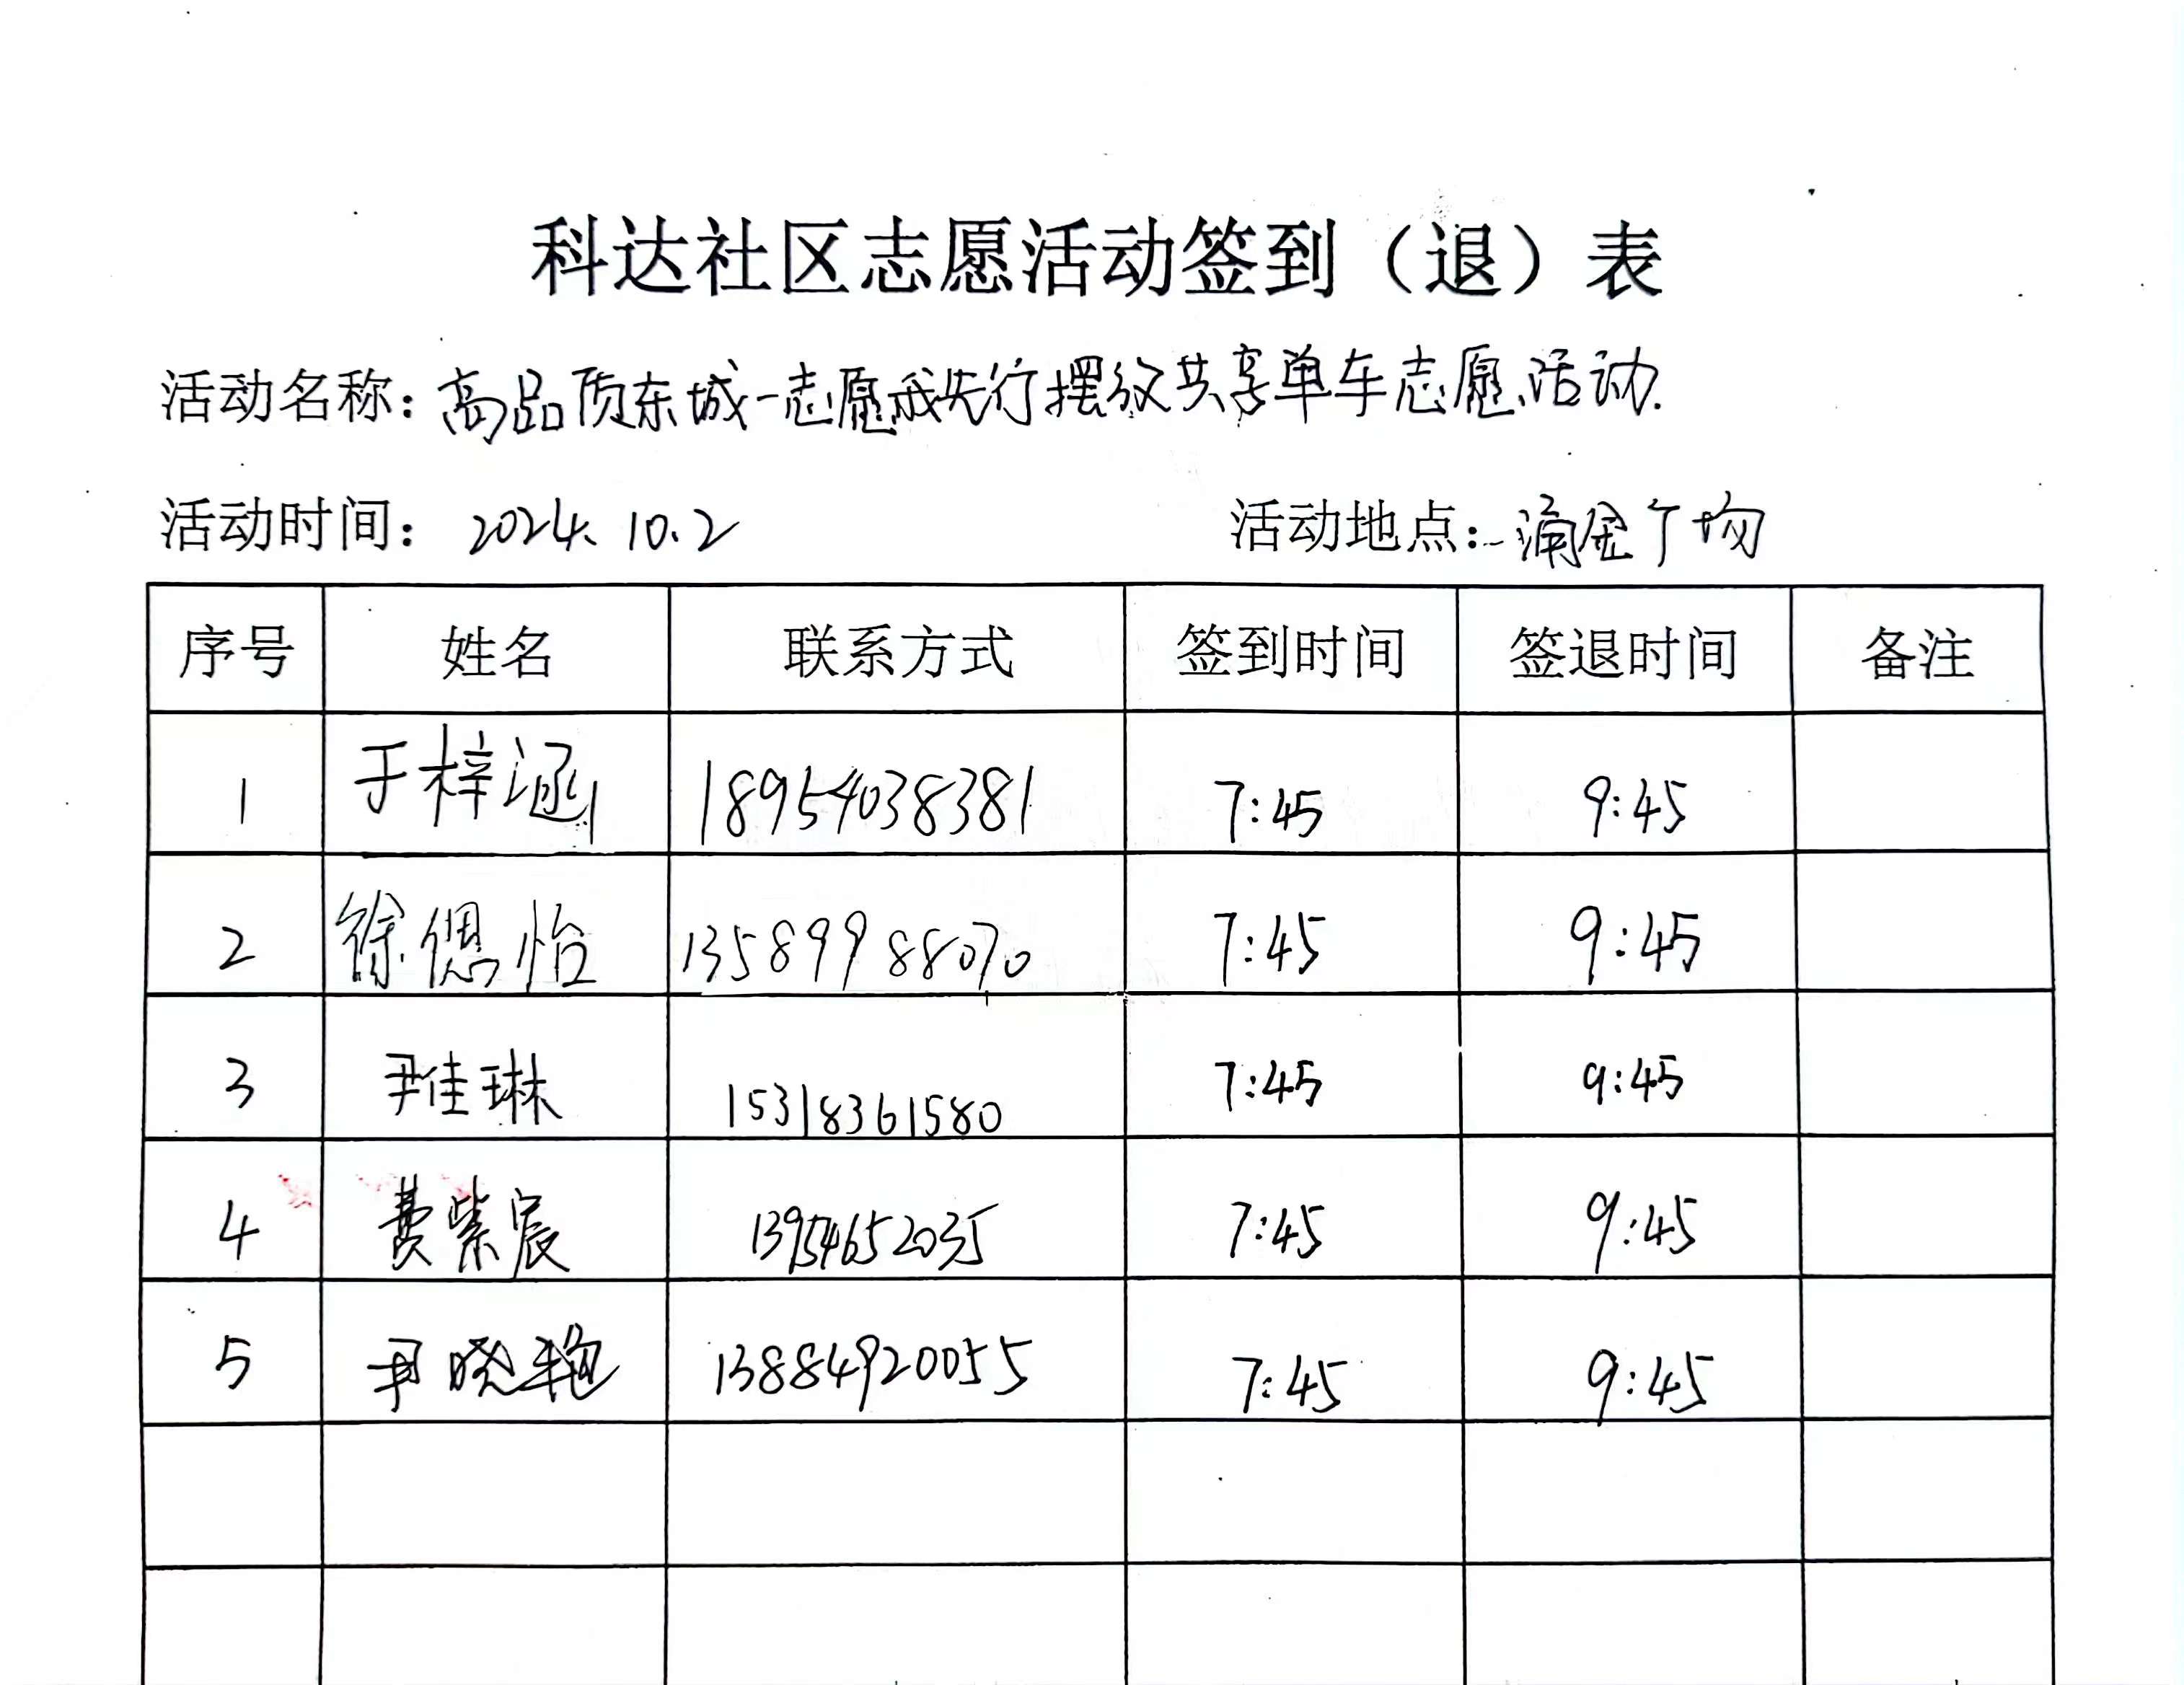 科达社区志愿活动签到（退）表
活动名称：高品质东城-志愿我先行摆放共享单车志愿活动.
活动时间：2024.10.2 活动地点：涌金广场
序号 姓名 联系方式 签到时间 签退时间 备注
1 于梓涵 18954038381 7:45 9:45
2 徐偲怡 13589988070 7:45 9:45
3 尹佳琳 15318361580 7:45 9:45
4 费紫宸 13954652035 7:45 9:45
5 尹晓艳 13884920055 7:45 9:45